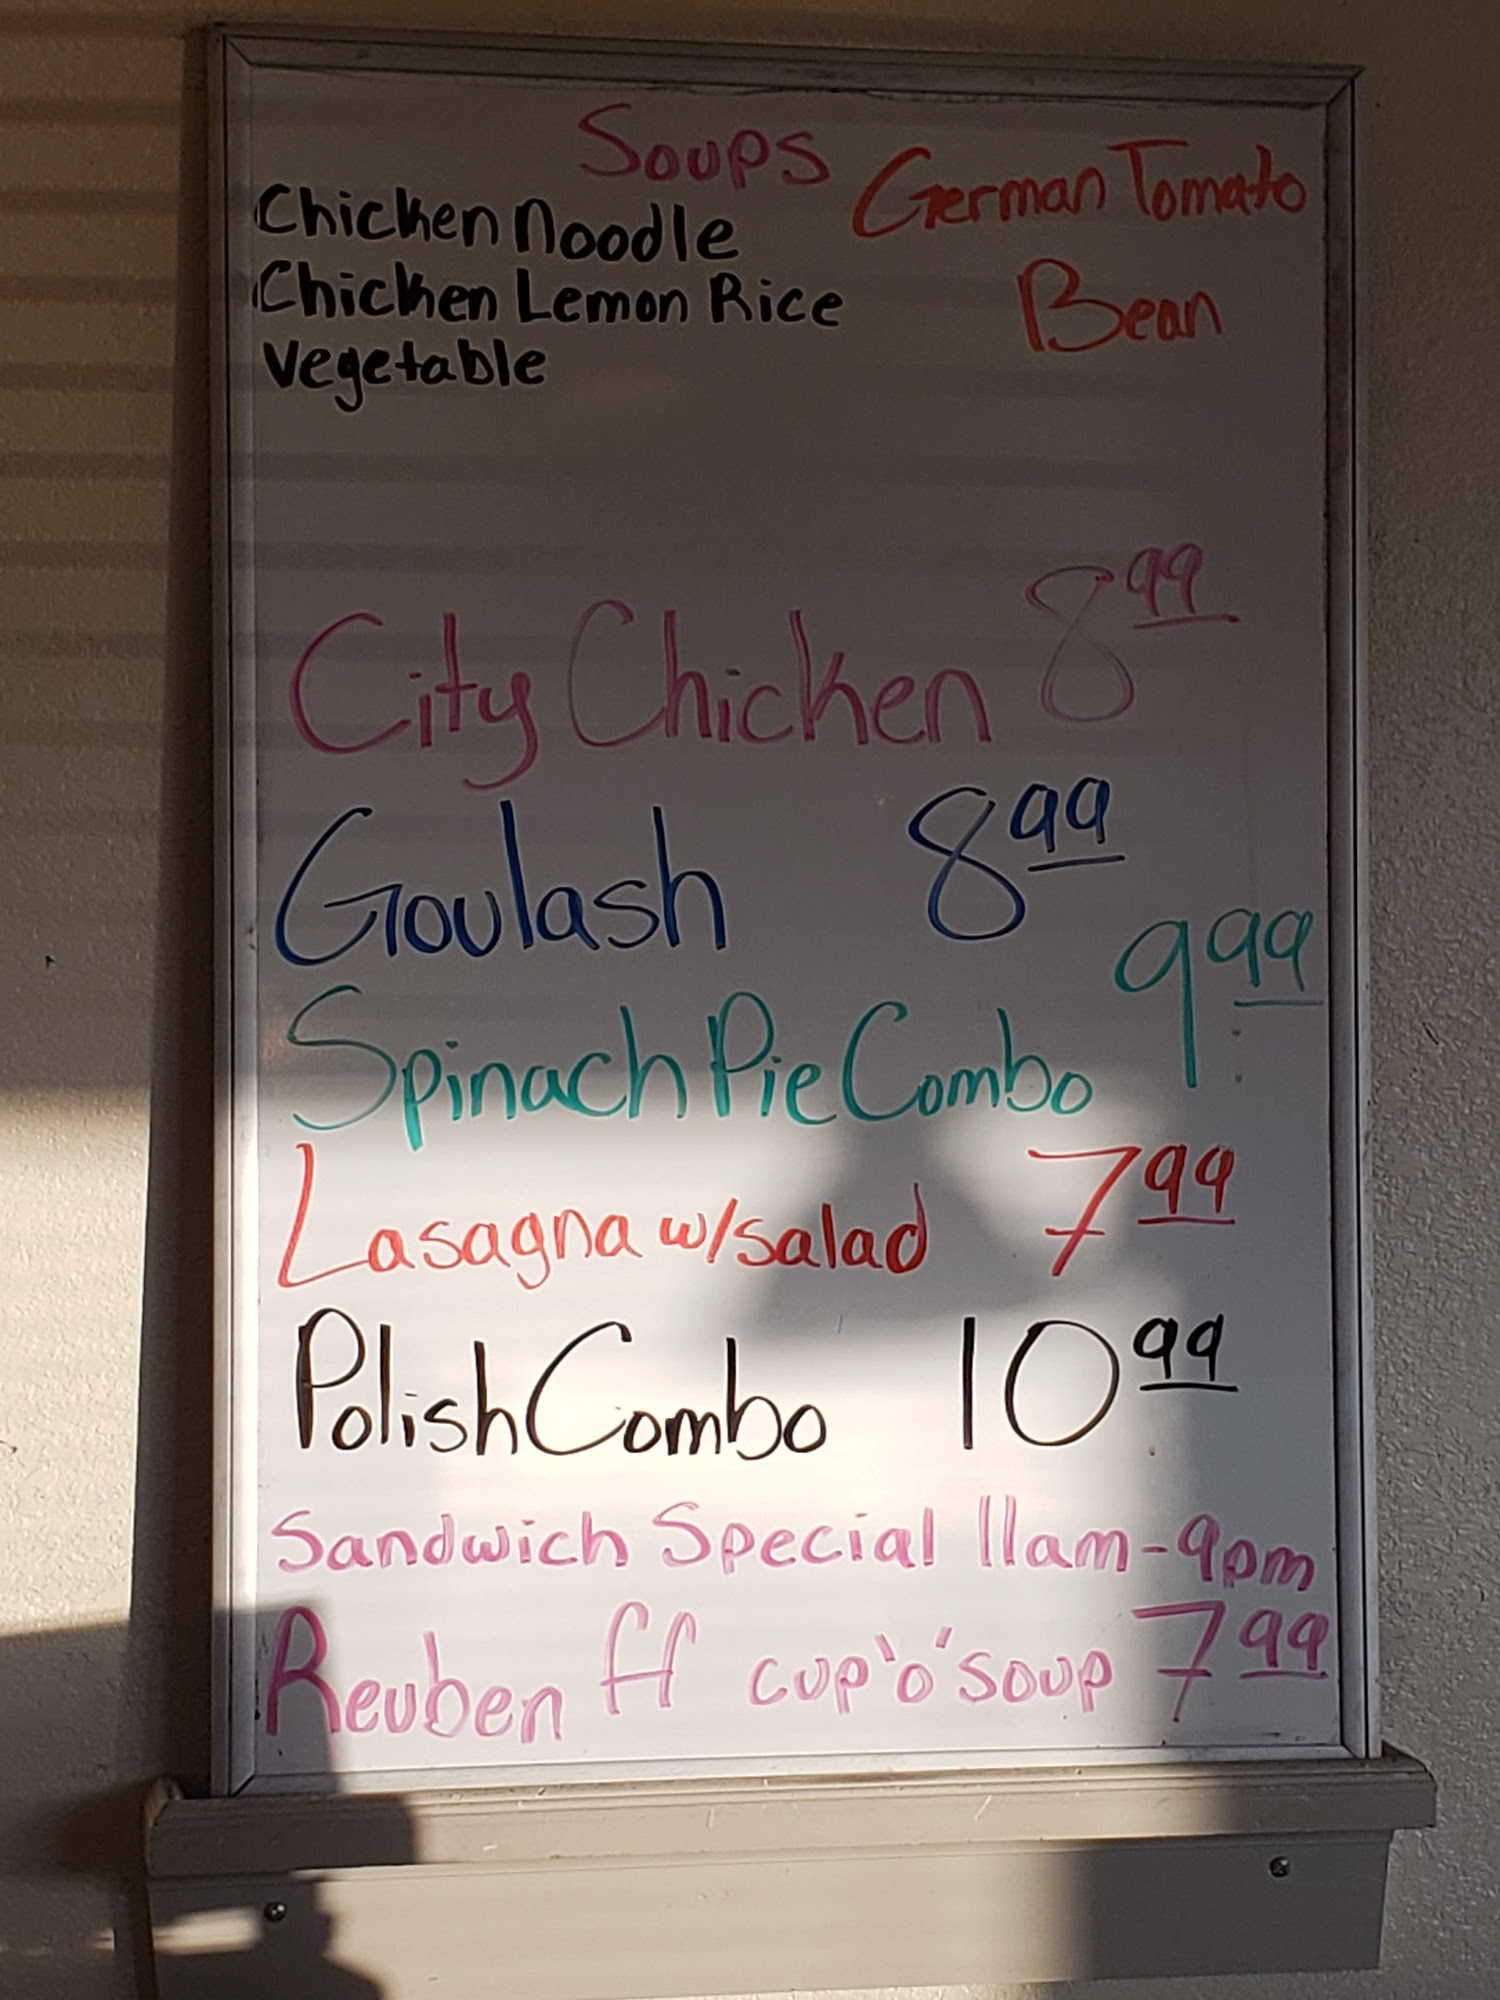 Soups
Chicken Noodle
Chicken Lemon Rice
Vegetable
German Tomato
Bean
City Chicken 8 99
Goulash 8 99
Spinach Pie Combo 9 99
Lasagna w/salad 7 99
Polish Combo 10 99
Sandwich Special 11am-9pm
Reuben ff cup 'o' soup 7 99